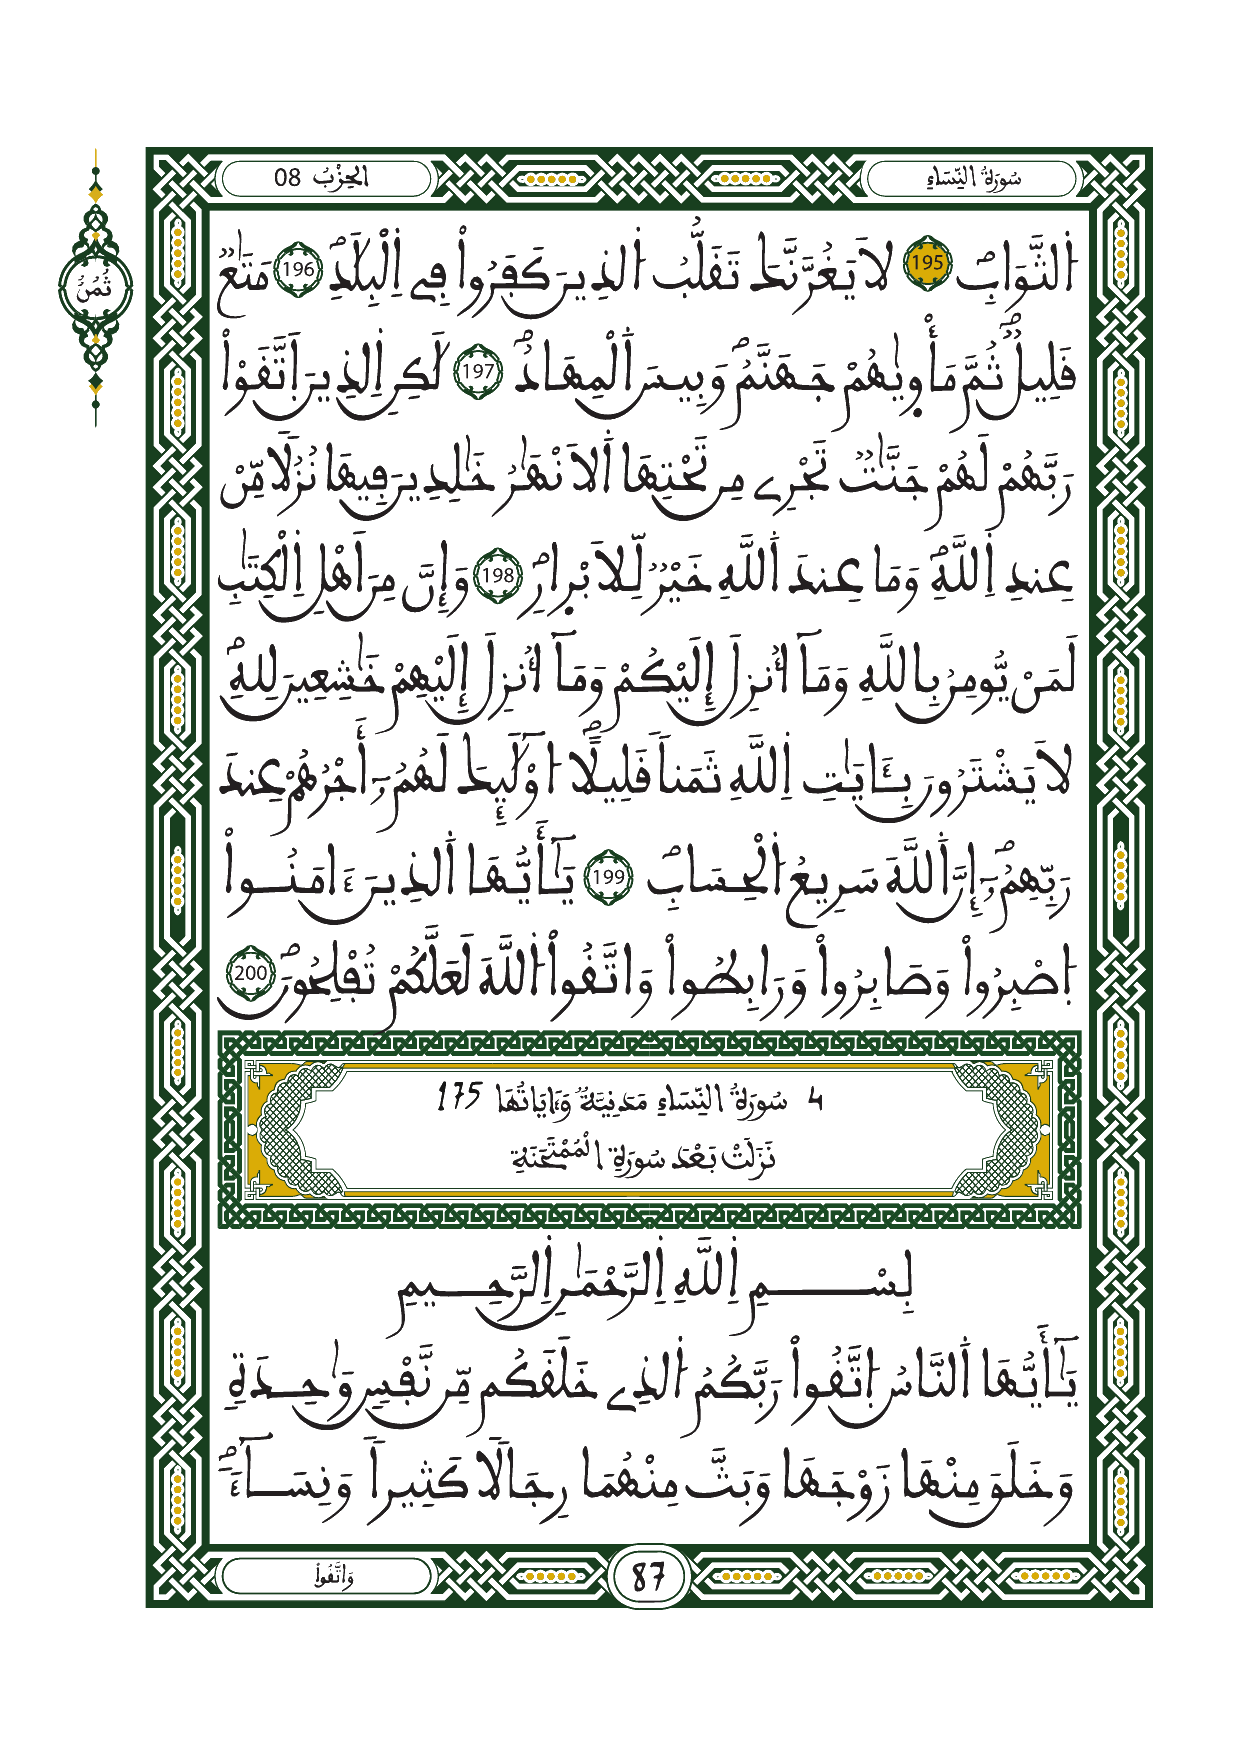 سُورَةُ النِّسَاءِ
الحِزْبُ 08
ثُمُنُ
اَ۬لثَّوَابِۖ 195 لَا يَغُرَّنَّكَ تَقَلُّبُ اُ۬لذِينَ كَفَرُواْ فِے اِ۬لْبِلَٰدِۖ 196 مَتَٰعٞ
قَلِيلٞۖ ثُمَّ مَأْو۪يٰهُمْ جَهَنَّمُۖ وَبِيسَ اَ۬لْمِهَادُۖ 197 لَٰكِنِ اِ۬لذِينَ اَ۪تَّقَوْاْ
رَبَّهُمْ لَهُمْ جَنَّٰتٞ تَجْرِے مِن تَحْتِهَا اَ۬لَانْهَٰرُ خَٰلِدِينَ فِيهَا نُزُلاٗ مِّنْ
عِندِ اِ۬للَّهِۖ وَمَا عِندَ اَ۬للَّهِ خَيْرٞ لِّلَابْر۪ارِۖ 198 وَإِنَّ مِنَ اَهْلِ اِ۬لْكِتَٰبِ
لَمَنْ يُّومِنُ بِاللَّهِ وَمَآ أُنزِلَ إِلَيْكُمْ وَمَآ أُنزِلَ إِلَيْهِمْ خَٰشِعِينَ لِلهِۖ
لَا يَشْتَرُونَ بِـَٔايَٰتِ اِ۬للَّهِ ثَمَناٗ قَلِيلاًۖ ا۟وْلَٰٓئِكَ لَهُمُۥٓ أَجْرُهُمْ عِندَ
رَبِّهِمُۥٓۖ إِنَّ اَ۬للَّهَ سَرِيعُ اُ۬لْحِسَابِۖ 199 يَٰٓأَيُّهَا اَ۬لذِينَ ءَامَنُواْ
اُ۪صْبِرُواْ وَصَابِرُواْ وَرَابِطُواْ وَاتَّقُواْ اُ۬للَّهَ لَعَلَّكُمْ تُفْلِحُونَۖ 200
4 سُورَةُ النِّسَاءِ مَدَنِيَّةٌ وَءَايَاتُهَا 175
نَزَلَتْ بَعْدَ سُورَةِ الْمُمْتَحَنَةِ
بِسْمِ اِ۬للَّهِ اِ۬لرَّحْمَٰنِ اِ۬لرَّحِيمِ
يَٰٓأَيُّهَا اَ۬لنَّاسُ اُ۪تَّقُواْ رَبَّكُمُ اُ۬لذِے خَلَقَكُم مِّن نَّفْسٖ وَٰحِدَةٖ
وَخَلَقَ مِنْهَا زَوْجَهَا وَبَثَّ مِنْهُمَا رِجَالاٗ كَثِيراٗ وَنِسَآءٗۖ
وَاتَّقُواْ
87